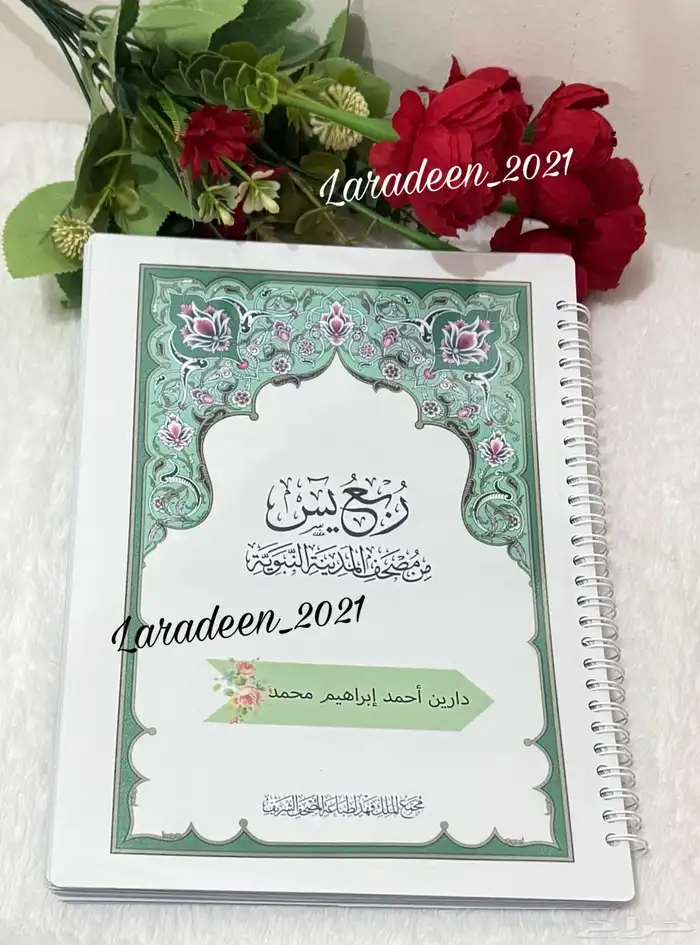 Laradeen_2021
رُبعُ يسٓ
مِن مُصْحَفِ المَدِينَةِ النَّبَوِيَّةِ
Laradeen_2021
دارين أحمد إبراهيم محمد
مجمع الملك فهد لطباعة المصحف الشريف
حراج